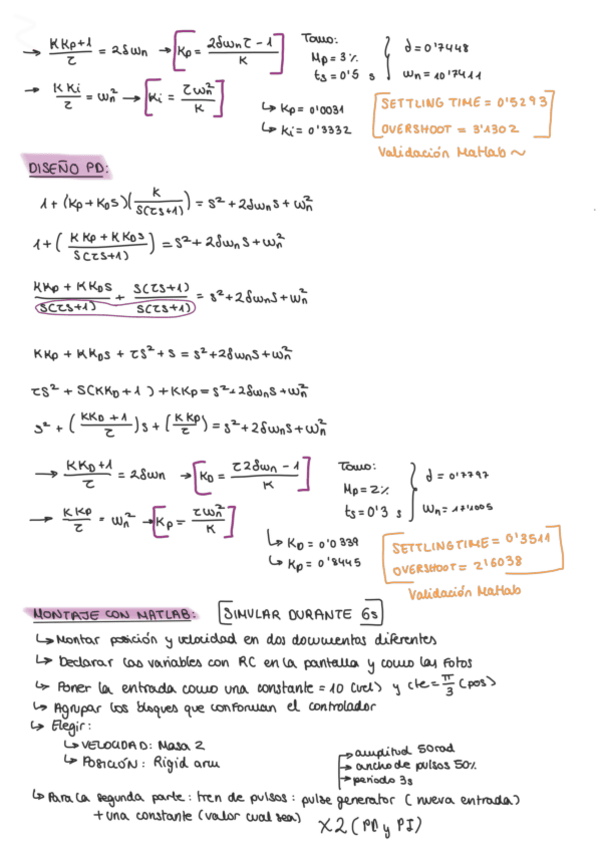 → KKp+1 / τ = 2δωn → [Kp = 2δωnτ - 1 / K]
Tomo:
Mp = 3%
ts = 0'5 s
δ = 0'7448
ωn = 10'7411
→ KKi / τ = ωn² → [Ki = τωn² / K]
↳ Kp = 0'0031
↳ Ki = 0'3332
SETTLING TIME = 0'5293
OVERSHOOT = 3'1302
Validación Matlab ~
DISEÑO PD:
1 + (Kp + KDs)(K / s(τs+1)) = s² + 2δωns + ωn²
1 + (KKp + KKDs / s(τs+1)) = s² + 2δωns + ωn²
KKp + KKDs / s(τs+1) + s(τs+1) / s(τs+1) = s² + 2δωns + ωn²
KKp + KKDs + τs² + s = s² + 2δωns + ωn²
τs² + s(KKD + 1) + KKp = s² + 2δωns + ωn²
s² + (KKD + 1 / τ)s + (KKp / τ) = s² + 2δωns + ωn²
→ KKD+1 / τ = 2δωn → [KD = τ2δωn - 1 / K]
Tomo:
Mp = 2%
ts = 0'3 s
δ = 0'7797
ωn = 17'1005
→ KKp / τ = ωn² → [Kp = τωn² / K]
↳ KD = 0'0339
↳ Kp = 0'8445
SETTLING TIME = 0'3511
OVERSHOOT = 2'6038
Validación Matlab
MONTAJE CON MATLAB: [SIMULAR DURANTE 6s]
↳ Montar posición y velocidad en dos documentos diferentes
↳ Declarar las variables con RC en la pantalla y como las fotos
↳ Poner la entrada como una constante = 10 (vel) y cte = π/3 (pos)
↳ Agrupar los bloques que conforman el controlador
↳ Elegir:
↳ VELOCIDAD: Masa 2
↳ POSICIÓN: Rigid arm
→ amplitud 50rad
→ ancho de pulsos 50%
→ periodo 3s
↳ Para la segunda parte: tren de pulsos: pulse generator (nueva entrada)
+ una constante (valor cual sea) X2 (PD y PI)